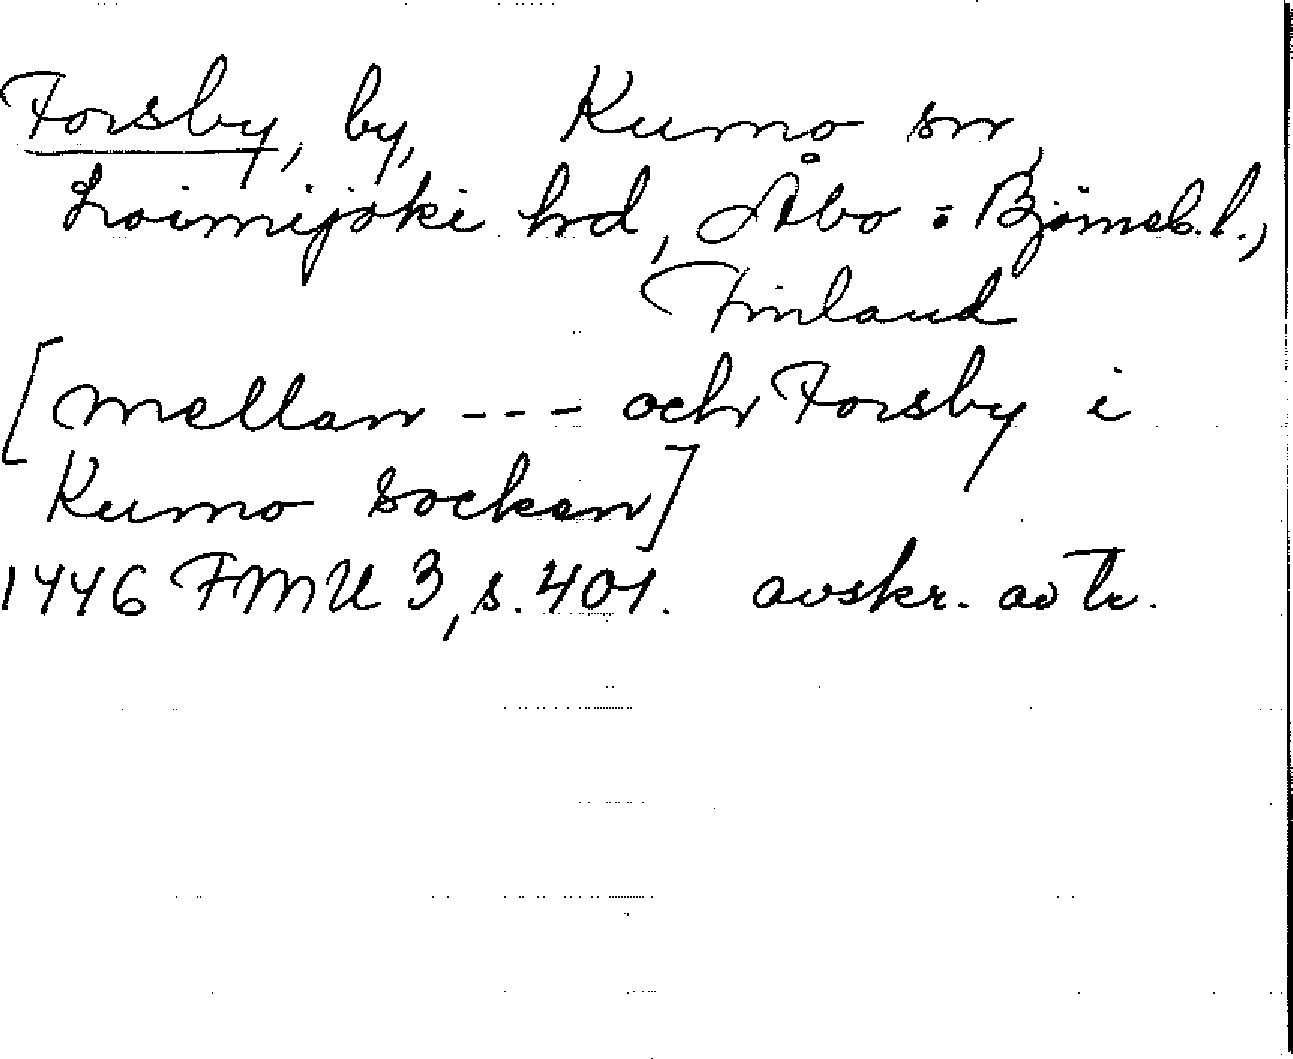 Forsby, by, Kumo sn,
Loimijoki hrd, Åbo : Björneb. l.,
Finland
[mellan --- och Forsby i
Kumo socken]
1446 FMU 3, s. 401. avskr. av tr.